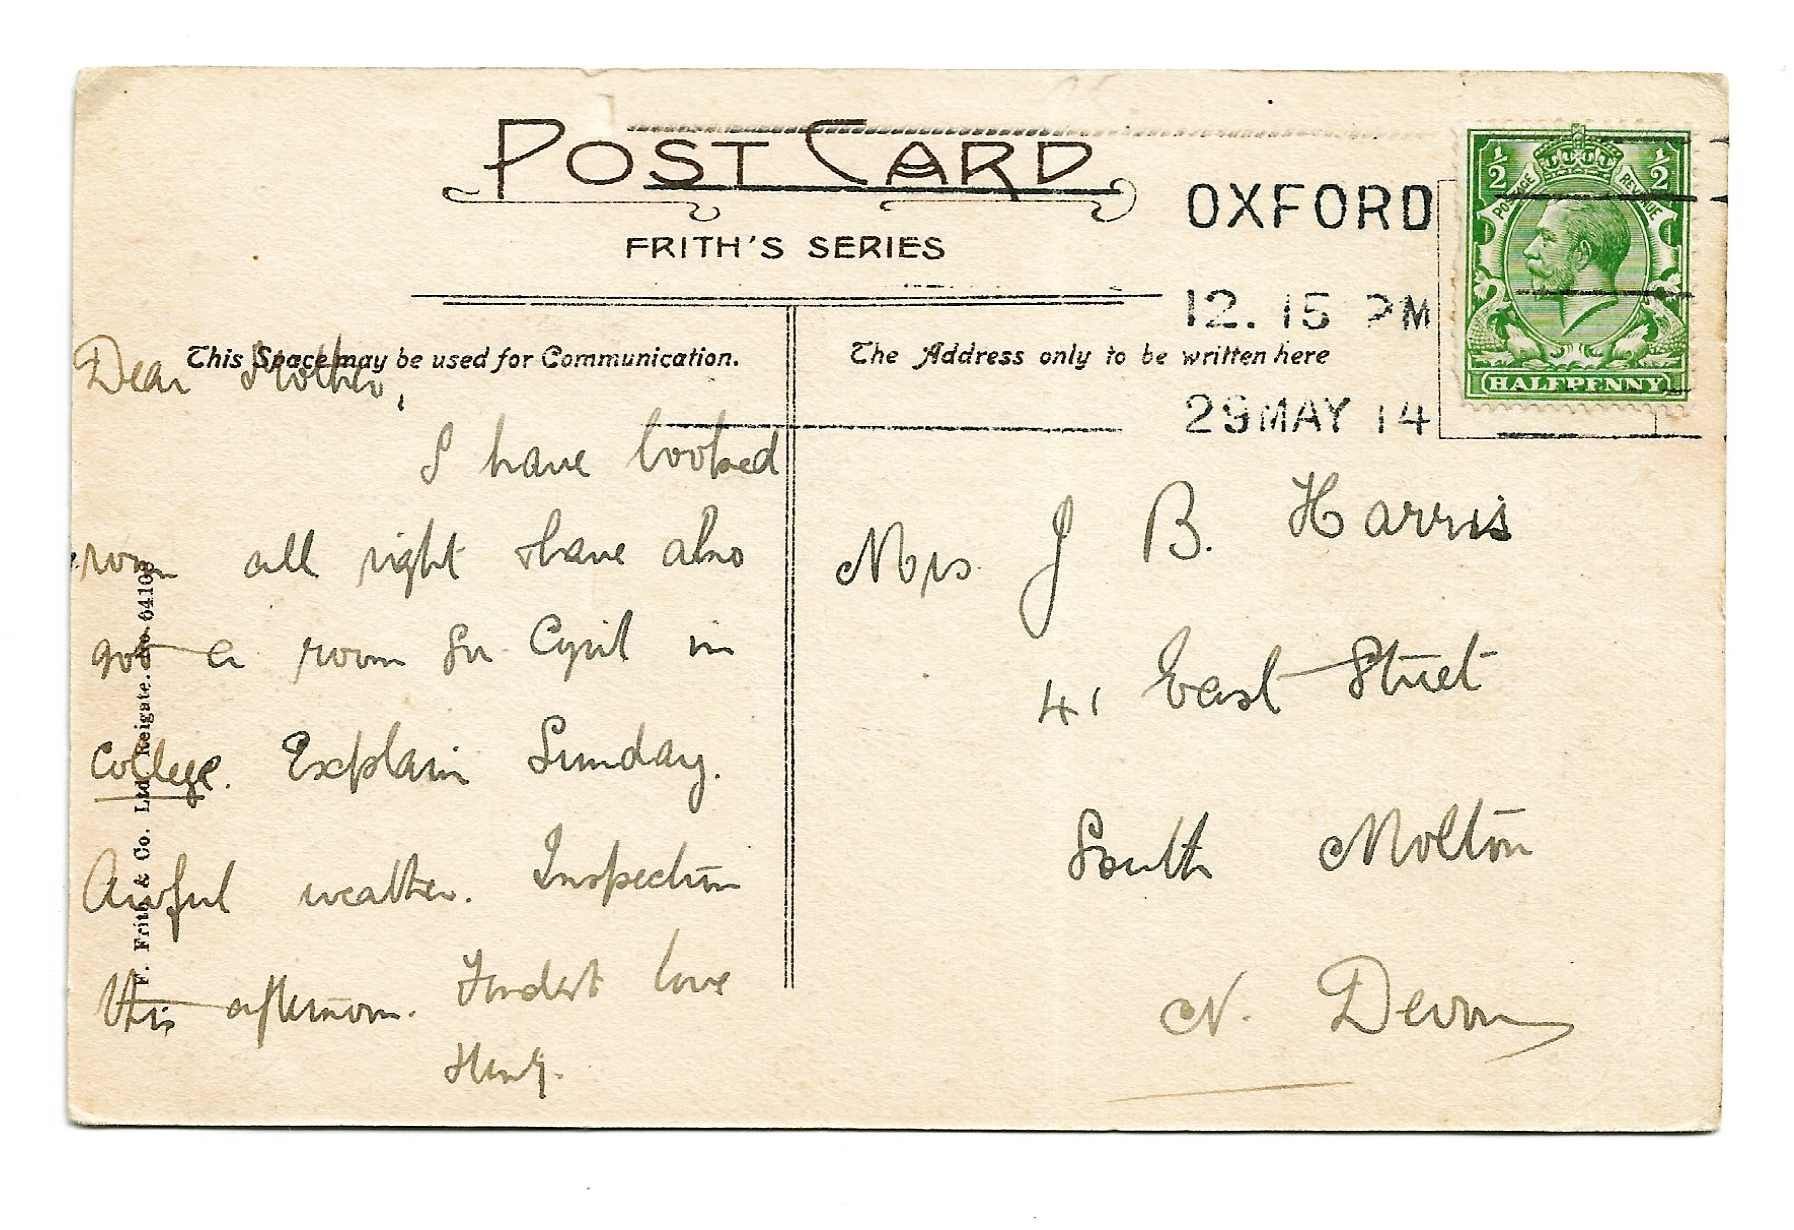 POST CARD
FRITH'S SERIES
OXFORD
12. 15 PM
29 MAY 14
½ ½
POSTAGE REVENUE
HALFPENNY
This Space may be used for Communication.
The Address only to be written here
Dear Mother,
I have booked
room all right & have also
got a room for Cyril in
College. Explain Sunday.
Awful weather. Inspection
this afternoon. Fondest love
F. Frith & Co. Ltd. Reigate. No. 64108
Mrs J B. Harris
41 East Street
South Molton
N. Devon